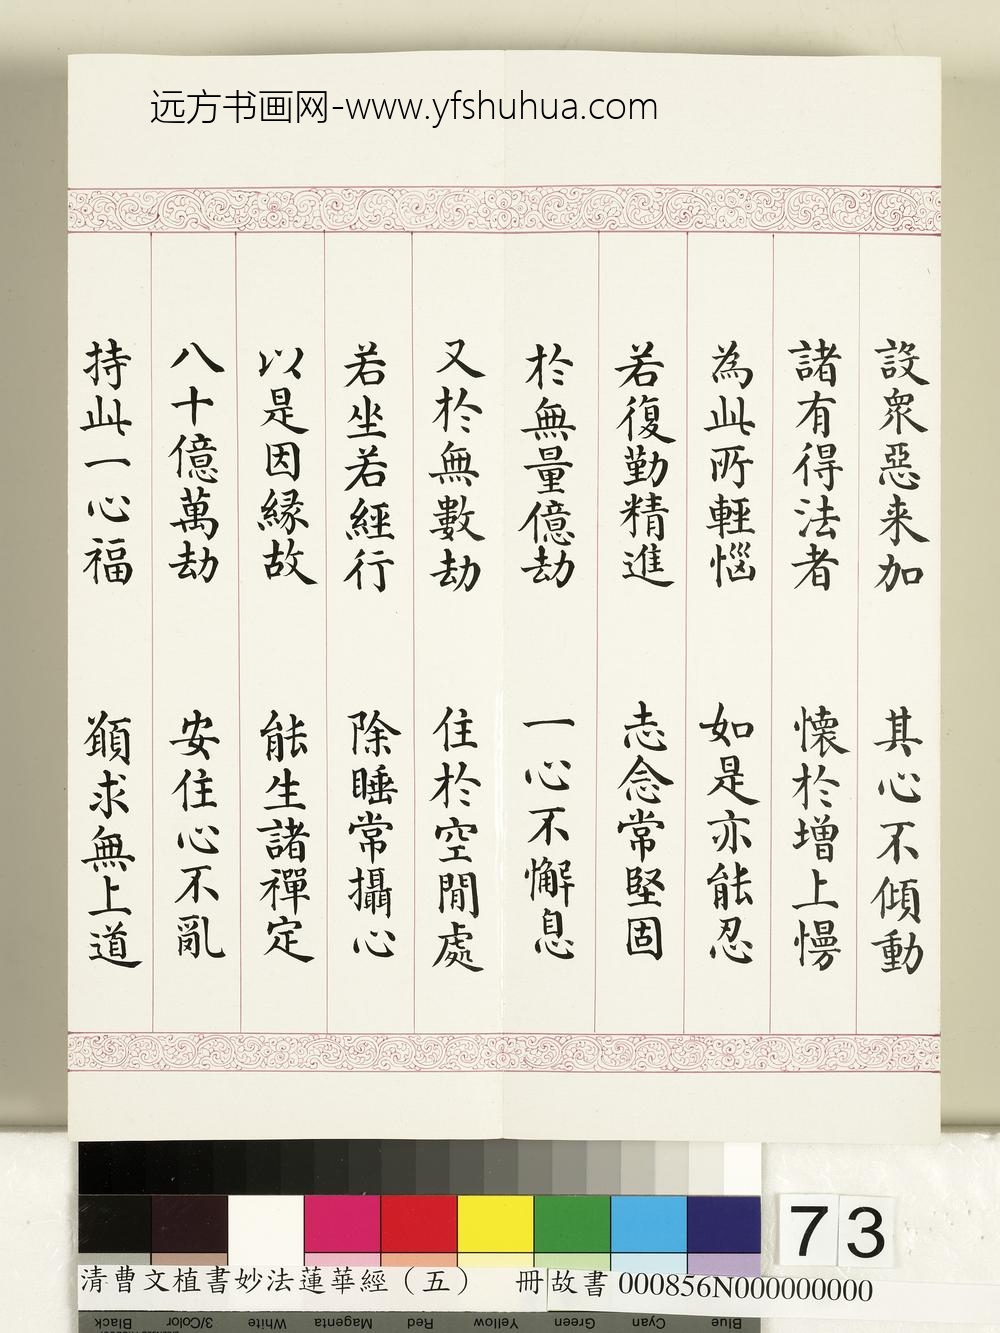 远方书画网-www.yfshuhua.com
設衆惡来加 其心不傾動
諸有得法者 懐於増上慢
為此所輕惱 如是亦能忍
若復勤精進 志念常堅固
於無量億劫 一心不懈息
又於無數劫 住於空閒處
若坐若經行 除睡常攝心
以是因縁故 能生諸禪定
八十億萬劫 安住心不亂
持此一心福 願求無上道
73
清曹文植書妙法蓮華經（五） 冊 故書 000856N000000000
Blue
Cyan
Green
Yellow
Red
Magenta
White
3/Color
Black